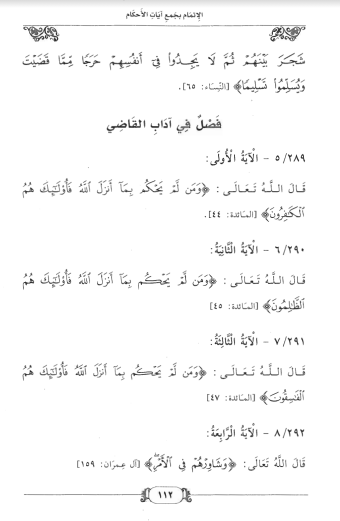 الإتمام بجمع آيات الأحكام
شَجَرَ بَيْنَهُمْ ثُمَّ لَا يَجِدُوا۟ فِىٓ أَنفُسِهِمْ حَرَجًا مِّمَّا قَضَيْتَ
وَيُسَلِّمُوا۟ تَسْلِيمًا﴾ [النِّسَاء: ٦٥].
فَصْلٌ فِي آدَابِ القَاضِي
٥/٢٨٩ - الْآيَةُ الْأُولَى:
قَالَ اللَّهُ تَعَالَى: ﴿وَمَن لَّمْ يَحْكُم بِمَآ أَنزَلَ ٱللَّهُ فَأُو۟لَـٰٓئِكَ هُمُ
ٱلْكَـٰفِرُونَ﴾ [المائدة: ٤٤].
٦/٢٩٠ - الْآيَةُ الثَّانِيَةُ:
قَالَ اللَّهُ تَعَالَى: ﴿وَمَن لَّمْ يَحْكُم بِمَآ أَنزَلَ ٱللَّهُ فَأُو۟لَـٰٓئِكَ هُمُ
ٱلظَّـٰلِمُونَ﴾ [المائدة: ٤٥]
٧/٢٩١ - الْآيَةُ الثَّالِثَةُ:
قَالَ اللَّهُ تَعَالَى: ﴿وَمَن لَّمْ يَحْكُم بِمَآ أَنزَلَ ٱللَّهُ فَأُو۟لَـٰٓئِكَ هُمُ
ٱلْفَـٰسِقُونَ﴾ [المائدة: ٤٧]
٨/٢٩٢ - الْآيَةُ الرَّابِعَةُ:
قَالَ اللَّهُ تَعَالَى: ﴿وَشَاوِرْهُمْ فِى ٱلْأَمْرِ﴾ [آل عمران: ١٥٩]
١١٢